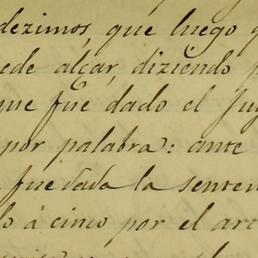 dezimos, que luego q
ede alçar, diziendo p
que fue dado el Ju
por palabra: ante
fue dada la senten
lo á cinco por el arc